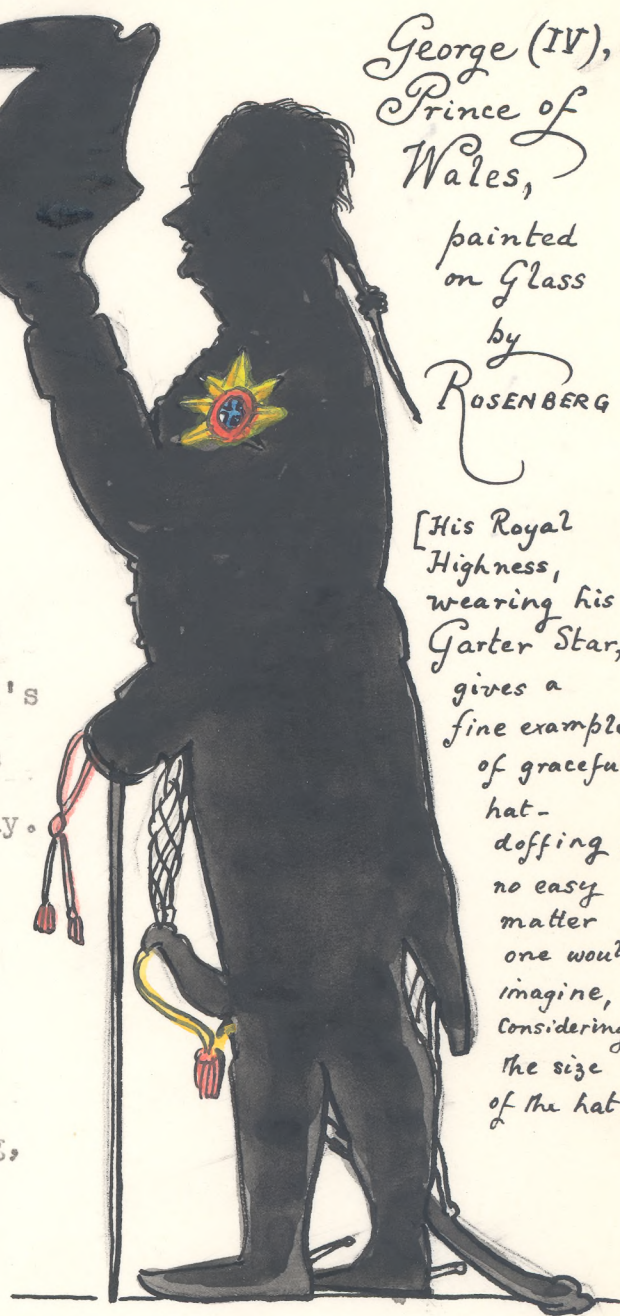 George (IV),
Prince of
Wales,
painted
on Glass
by
ROSENBERG
[His Royal
Highness,
wearing his
Garter Star,
gives a
fine example
of graceful
hat-
doffing
no easy
matter
one would
imagine,
Considering
the size
of the hat
's
y.
g,